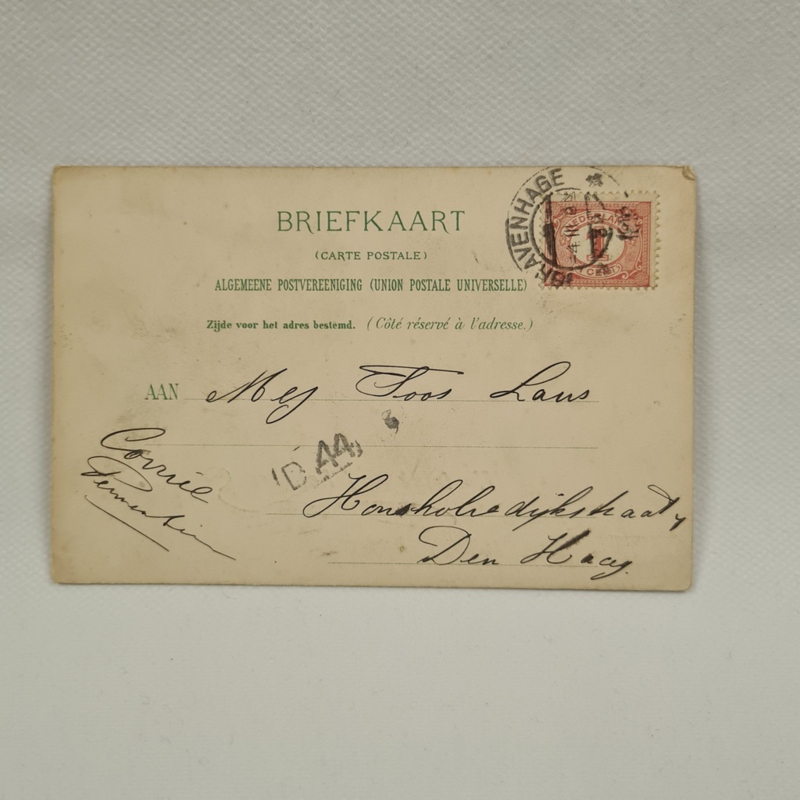 BRIEFKAART
(CARTE POSTALE)
ALGEMEENE POSTVEREENIGING (UNION POSTALE UNIVERSELLE)
Zijde voor het adres bestemd. (Côté réservé à l'adresse.)
'SGRAVENHAGE
NEDERLAND
1
CENT
AAN Mej Toos Laus
D 44
Corrie
Honsholredijkstraat
Den Haag.